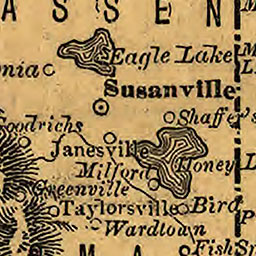 ASSEN
M
Eagle Lake
M
L
nia
Susanville
Shaffer's
Goodrichs
Janesville
Honey L
Milford
Greenville
Taylorsville
Bird
P
Wardtown
M A
FishSp